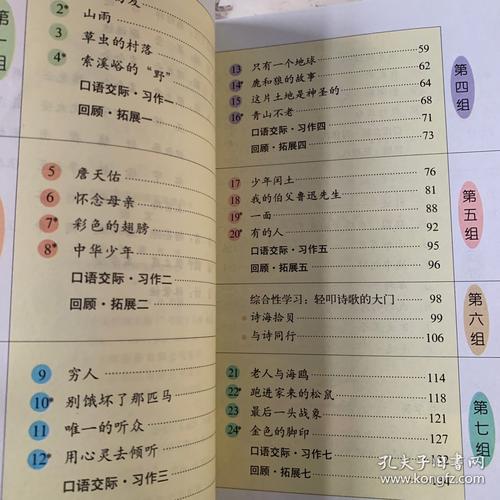 第一组
2* 山雨
3 草虫的村落
4* 索溪峪的“野”
口语交际·习作一
回顾·拓展一
5 詹天佑
6 怀念母亲
7* 彩色的翅膀
8* 中华少年
口语交际·习作二
回顾·拓展二
9 穷人
10* 别饿坏了那匹马
11 唯一的听众
12* 用心灵去倾听
口语交际·习作三
13 只有一个地球 59
14* 鹿和狼的故事 62
15* 这片土地是神圣的 64
16* 青山不老 68
口语交际·习作四 71
回顾·拓展四 73
第四组
17 少年闰土 76
18 我的伯父鲁迅先生 81
19* 一面 88
20* 有的人 92
口语交际·习作五 95
回顾·拓展五 96
第五组
综合性学习：轻叩诗歌的大门 98
诗海拾贝 99
与诗同行 106
第六组
21 老人与海鸥 114
22* 跑进家来的松鼠 118
23 最后一头战象 121
24* 金色的脚印 127
口语交际·习作七 132
回顾·拓展七
第七组
孔夫子旧书网